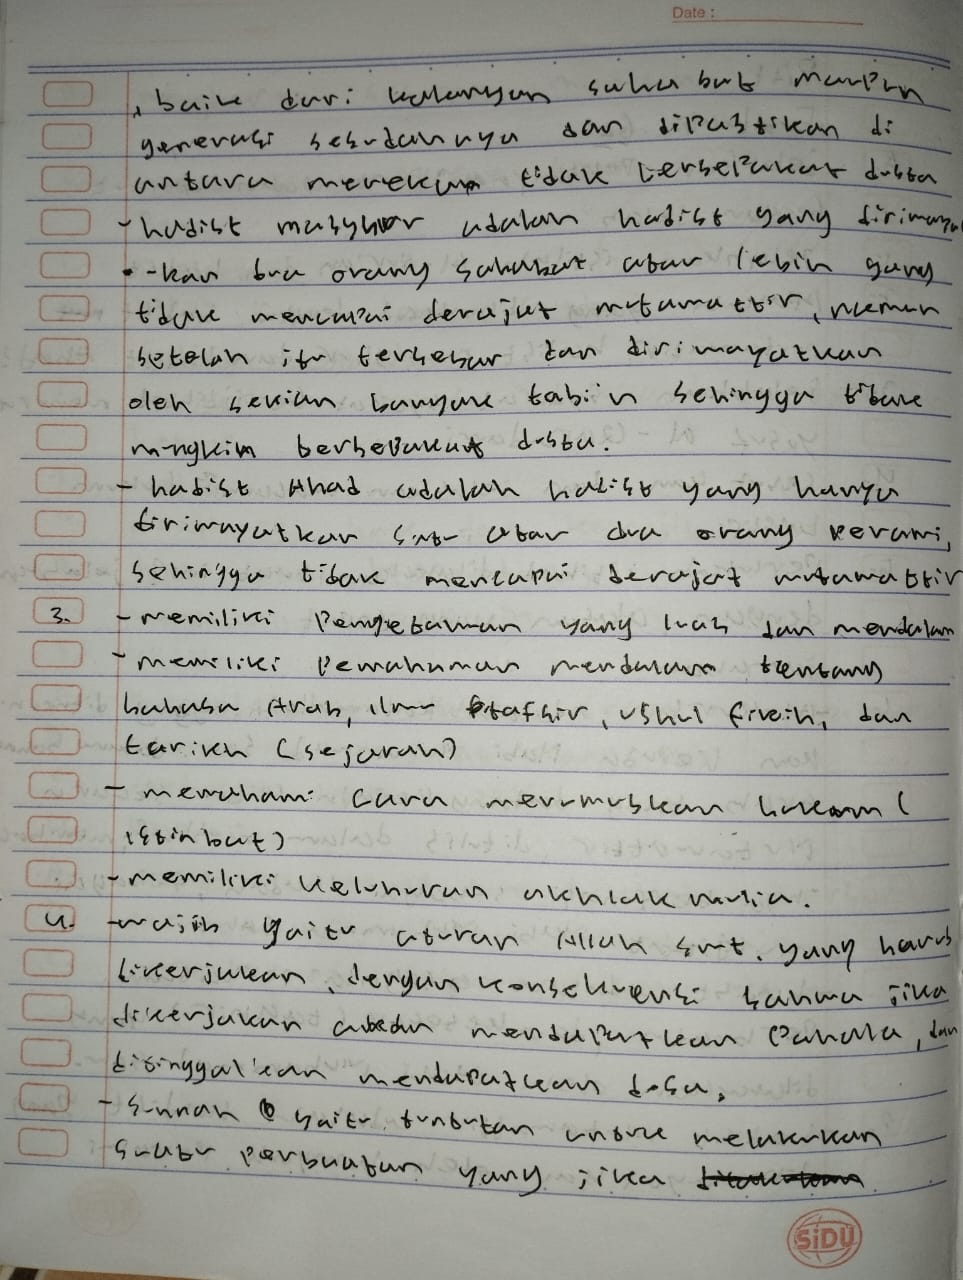 Date :
, baik dari kalangan sahabat maupun
generasi sesudahnya dan dipastikan di
antara mereka tidak bersepakat dusta
- hadist masyhur adalah hadist yang diriwaya
- kan dua orang sahabat atau lebih yang
tidak mencapai derajat mutawattir, namun
setelah itu tersebar dan diriwayatkan
oleh sekian banyak tabi'in sehingga tidak
mungkin bersepakat dusta.
- hadist Ahad adalah hadist yang hanya
diriwayatkan satu atau dua orang perawi,
sehingga tidak mencapai derajat mutawattir
3. - memiliki pengetahuan yang luas dan mendalam
- memiliki pemahaman mendalam tentang
bahasa Arab, ilmu tafsir, ushul fiqih, dan
tarikh (sejarah)
- memahami cara merumuskan hukum (
istinbat)
- memiliki keluhuran akhlak mulia.
4. - wajib yaitu aturan Allah swt. yang harus
dikerjakan, dengan konsekuensi bahwa jika
dikerjakan akan mendapatkan pahala, dan
ditinggalkan mendapatkan dosa.
- sunnah yaitu tuntutan untuk melakukan
suatu perbuatan yang jika
SiDU